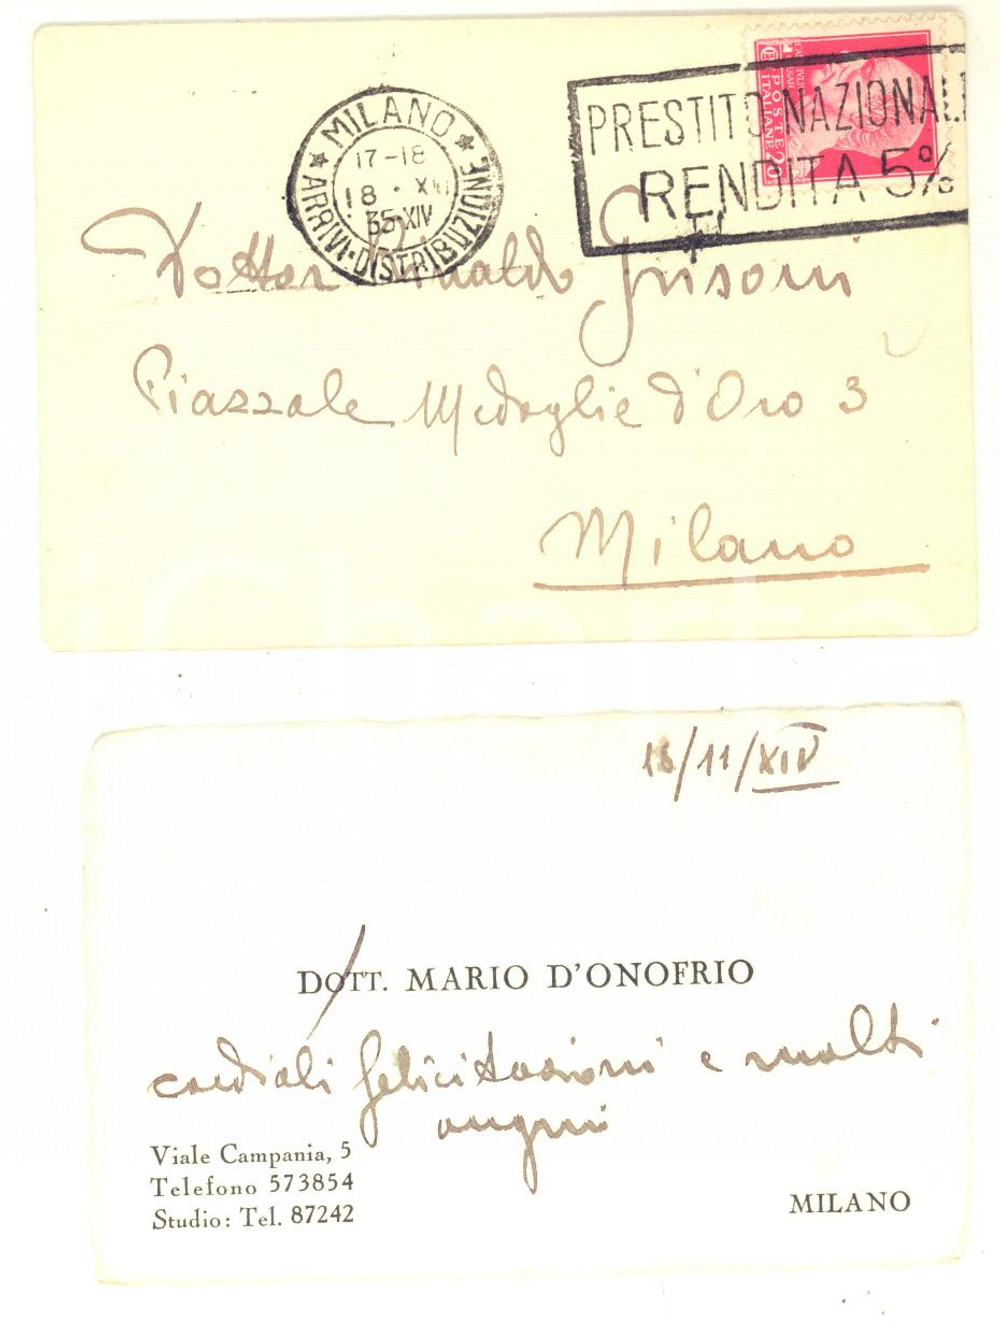 MILANO
17-18
18 · XI
35-XIV
ARRIVI·DISTRIBUZIONE
PRESTITO NAZIONAL
RENDITA 5%
POSTE ITALIANE 20
Dottor Rinaldo Grisoni
Piazzale Medaglie d'Oro 3
Milano
18/11/XIV
DOTT. MARIO D'ONOFRIO
cordiali felicitazioni e molti
auguri
Viale Campania, 5
Telefono 573854
Studio: Tel. 87242
MILANO
iCharta